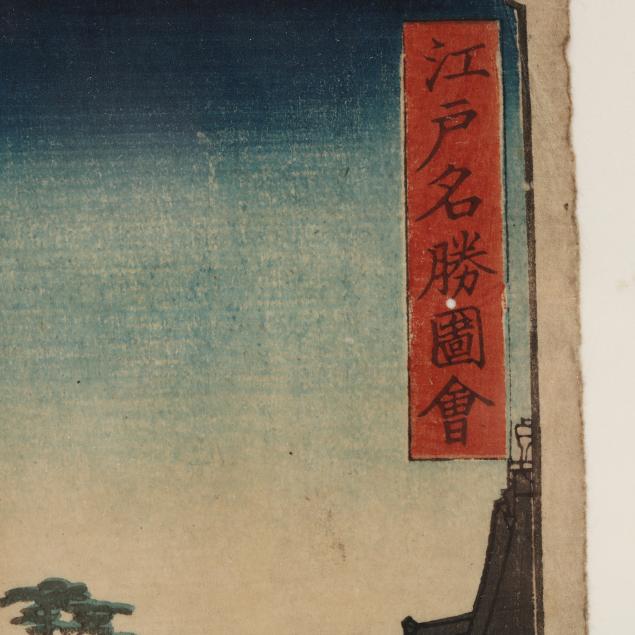 江戸名勝圖會